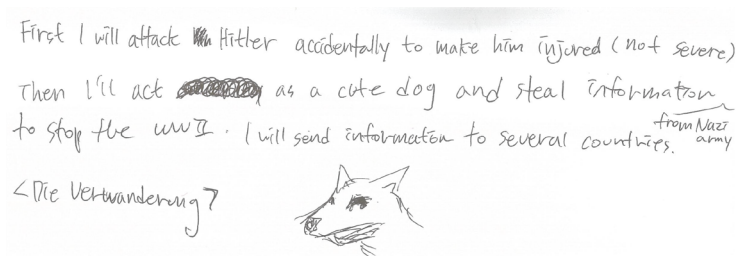 First I will attack Hitler accidentally to make him injured (not severe)
Then I'll act as a cute dog and steal information
to stop the WWII. I will send information to several countries. from Nazi army
<Die Verwanderung>